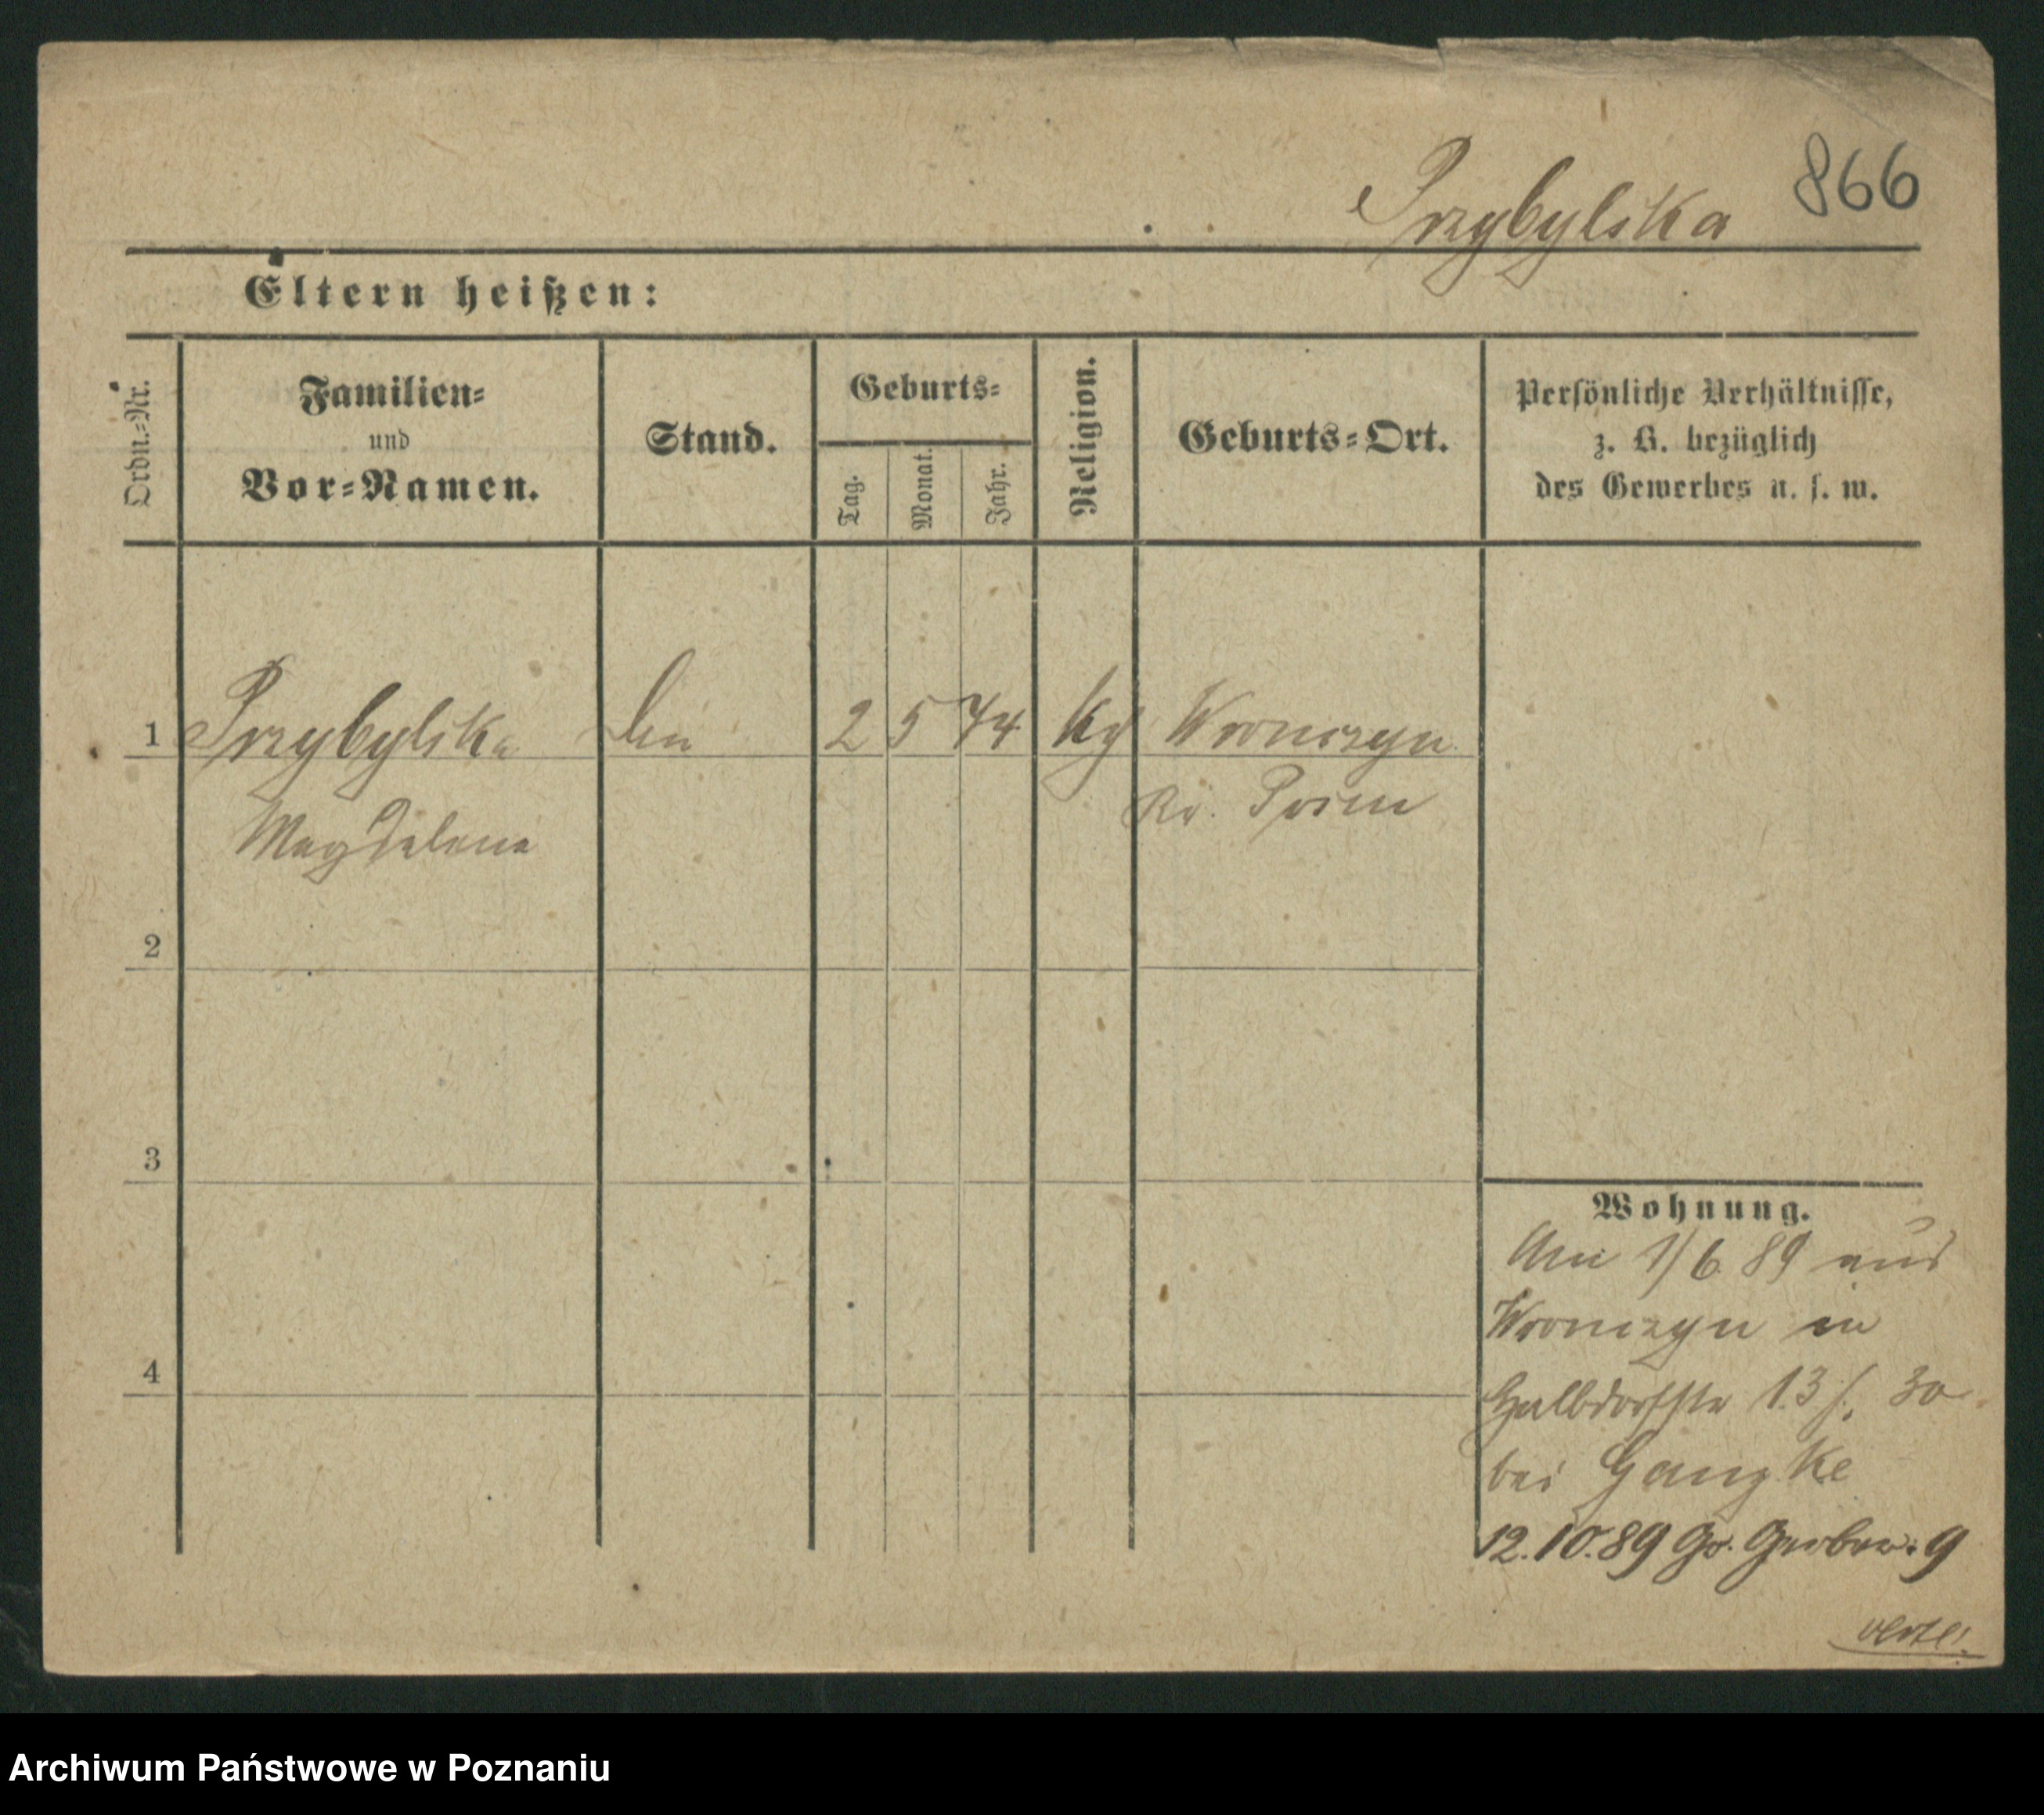 Przybylska 866
Eltern heißen:
Ordn.=Nr.
Familien=
und
Vor=Namen.
Stand.
Geburts=
Tag.
Monat.
Jahr.
Religion.
Geburts=Ort.
Persönliche Verhältnisse,
z. B. bezüglich
des Gewerbes u. s. w.
1 Przybylska 2 5 74 kg Wronczyn
Magdalena Kr. Posen
2
3
4
Wohnung.
Am 1/6 89 aus
Wronczyn in
Halbdorfstr 13 30
bei Ganzke
12.10.89 Gr. Gerber. 9
verte!
Archiwum Państwowe w Poznaniu